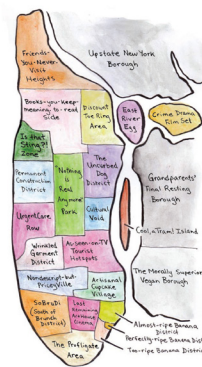 Friends-
You-Never-
Visit
Heights
Upstate New York
Borough
Books-you-keep-
meaning to-read
Side
Discount
Toe Ring
Area
East
River
Egg
Crime Drama
Film Set
Is that
Sting?!
Zone
The
Uncurbed
Dog
District
Permanent
Construction
District
Nothing
Is
Real
Anymore
Park
Grandparents'
Final Resting
Borough
Urgent Care
Row
Cultural
Void
Cool, a Tram! Island
Wrinkled
Garment
District
As-seen-on-TV
Tourist
Hotspots
Nondescript-but-
Priceyville
Artisanal
Cupcake
Village
The Morally Superior
Vegan Borough
SoBruDi
(South of
Brunch
District)
Last
Remaining
Arthouse
Cinema
Almost-ripe Banana
District
Perfectly-ripe Banana Dis
Too-ripe Banana Distric
The Profligate
Area